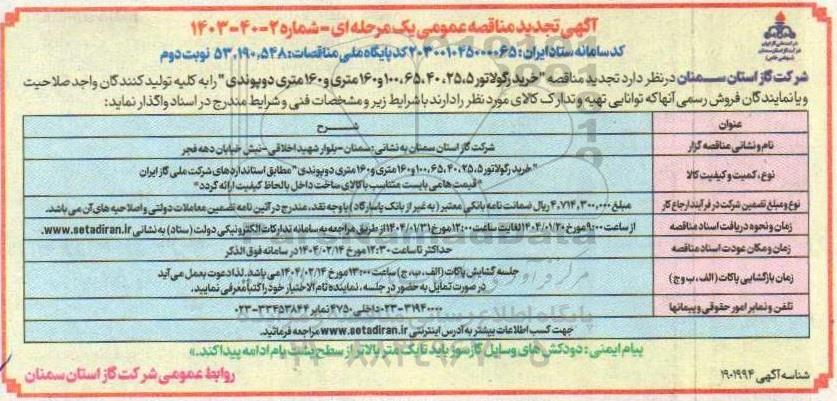 آگهی تجدید مناقصه عمومی یک مرحله ای - شماره ۲-۴۰-۱۴۰۳
کد سامانه ستاد ایران: ۲۰۳۰۰۱۰۴۵۰۰۰۰۶۵ کد پایگاه ملی مناقصات: ۵۳,۱۹۰,۵۴۸ نوبت دوم
شرکت گاز استان سمنان در نظر دارد تجدید مناقصه "خرید رگولاتور ۲۵،۵، ۴۰، ۶۵، ۱۰۰و۱۶۰ متری و ۱۶۰ متری دوپوندی" را به کلیه تولیدکنندگان واجد صلاحیت
و یا نمایندگان فروش رسمی آنها که توانایی تهیه و تدارک کالای مورد نظر را دارند با شرایط زیر و مشخصات فنی و شرایط مندرج در اسناد واگذار نماید:
عنوان شرح
نام و نشانی مناقصه گزار شرکت گاز استان سمنان به نشانی: سمنان - بلوار شهید اخلاقی - نبش خیابان دهه فجر
نوع، کمیت و کیفیت کالا "خرید رگولاتور ۲۵،۵، ۴۰، ۶۵، ۱۰۰و۱۶۰ متری و ۱۶۰ متری دوپوندی" مطابق استانداردهای شرکت ملی گاز ایران
"قیمت ها می بایست متناسب با کالای ساخت داخل بالحاظ کیفیت ارائه گردد"
نوع و مبلغ تضمین شرکت در فرآیند ارجاع کار مبلغ ۴,۷۱۴,۳۰۰,۰۰۰ ریال ضمانت نامه بانکی معتبر (به غیر از بانک پاسارگاد) یا وجه نقد، مندرج در آئین نامه تضمین معاملات دولتی و اصلاحیه های آن می باشد.
زمان و نحوه دریافت اسناد مناقصه از ساعت ۹:۰۰ مورخ ۱۴۰۴/۰۱/۲۰ لغایت ساعت ۱۲:۰۰ مورخ ۱۴۰۴/۰۱/۳۱ از طریق مراجعه به سامانه تدارکات الکترونیکی دولت (ستاد) به نشانی www.setadiran.ir.
زمان و مکان عودت اسناد مناقصه حداکثر تا ساعت ۱۲:۳۰ مورخ ۱۴۰۴/۰۲/۱۴ در سامانه فوق الذکر
زمان بازگشایی پاکات (الف، ب و ج) جلسه گشایش پاکات (الف، ب، ج) ساعت ۱۳:۰۰ مورخ ۱۴۰۴/۰۲/۱۴ می باشد. لذا دعوت بعمل می آید
در صورت تمایل به حضور در جلسه، نماینده تام الاختیار خود را کتباً معرفی نمایید.
تلفن و نمابر امور حقوقی و پیمانها ۰۲۳-۳۱۹۴۰۰۰۰ داخلی ۴۷۵۰ نمابر ۰۲۳-۳۳۴۵۳۸۴۴
جهت کسب اطلاعات بیشتر به آدرس اینترنتی www.setadiran.ir مراجعه فرمائید.
پیام ایمنی: دودکش های وسایل گازسوز باید تا یک متر بالاتر از سطح پشت بام ادامه پیدا کند.»
شناسه آگهی ۱۹۰۱۹۹۴ روابط عمومی شرکت گاز استان سمنان